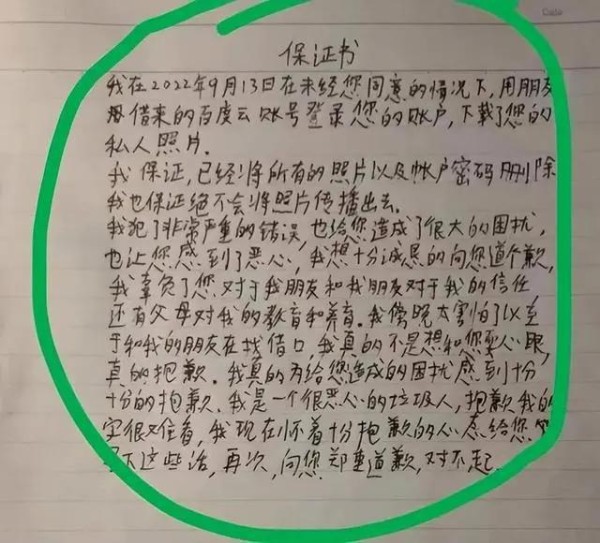 Date
保证书
我在2022年9月13日在未经您同意的情况下,用朋友
借来的百度云账号登录您的账户,下载了您的
私人照片.
我保证,已经将所有的照片以及帐户密码删除
我也保证绝不会将照片传播出去.
我犯了非常严重的错误,也给您造成了很大的困扰,
也让您感到了恶心,我想十分诚恳的向您道个歉,
我辜负了您对于我朋友和我朋友对于我的信任
还有父母对我的教育和养育.我傍晚太害怕了以至
于和我的朋友在找借口,我真的不是想和您耍心眼,
真的抱歉.我真的为给您造成的困扰感到十分
十分的抱歉.我是一个很恶心的垃圾人,抱歉我的
字很,我现在怀着十分抱歉的心态给您写
下这些话,再次,向您郑重道歉,对不起.